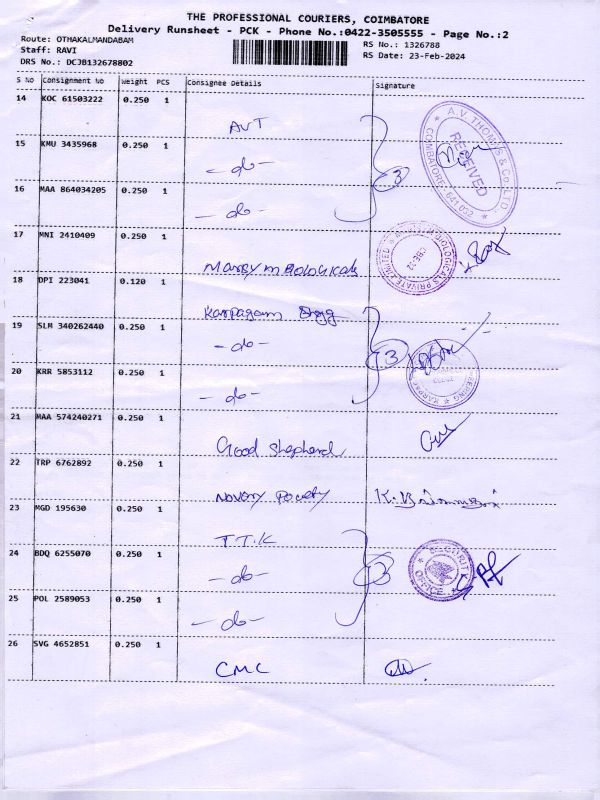 THE PROFESSIONAL COURIERS, COIMBATORE
Delivery Runsheet - PCK - Phone No.:0422-3505555 - Page No.:2
Route: OTHAKALMANDABAM
RS No.: 1326788
Staff: RAVI
RS Date: 23-Feb-2024
DRS No.: DCJB132678802
S No Consignment No Weight PCS Consignee Details Signature
14 KOC 61503222 0.250 1
AVT
A.V. THOMAS & CO. LTD.
RECEIVED
COIMBATORE - 641 032
15 KMU 3435968 0.250 1
-do-
3
16 MAA 864034205 0.250 1
-do-
17 MNI 2410409 0.250 1
Biologicals
BIOLOGICALS PRIVATE LIMITED
CBE-32
18 DPI 223041 0.120 1
Karpagam Engg
19 SLM 340262440 0.250 1
-do-
3
20 KRR 5853112 0.250 1
-do-
21 MAA 574240271 0.250 1
Good Shepherd
22 TRP 6762892 0.250 1
23 MGD 195630 0.250 1
T.T.K
24 BDQ 6255070 0.250 1
-do-
3
SECURITY
OFFICE
25 POL 2589053 0.250 1
-do-
26 SVG 4652851 0.250 1
CMC